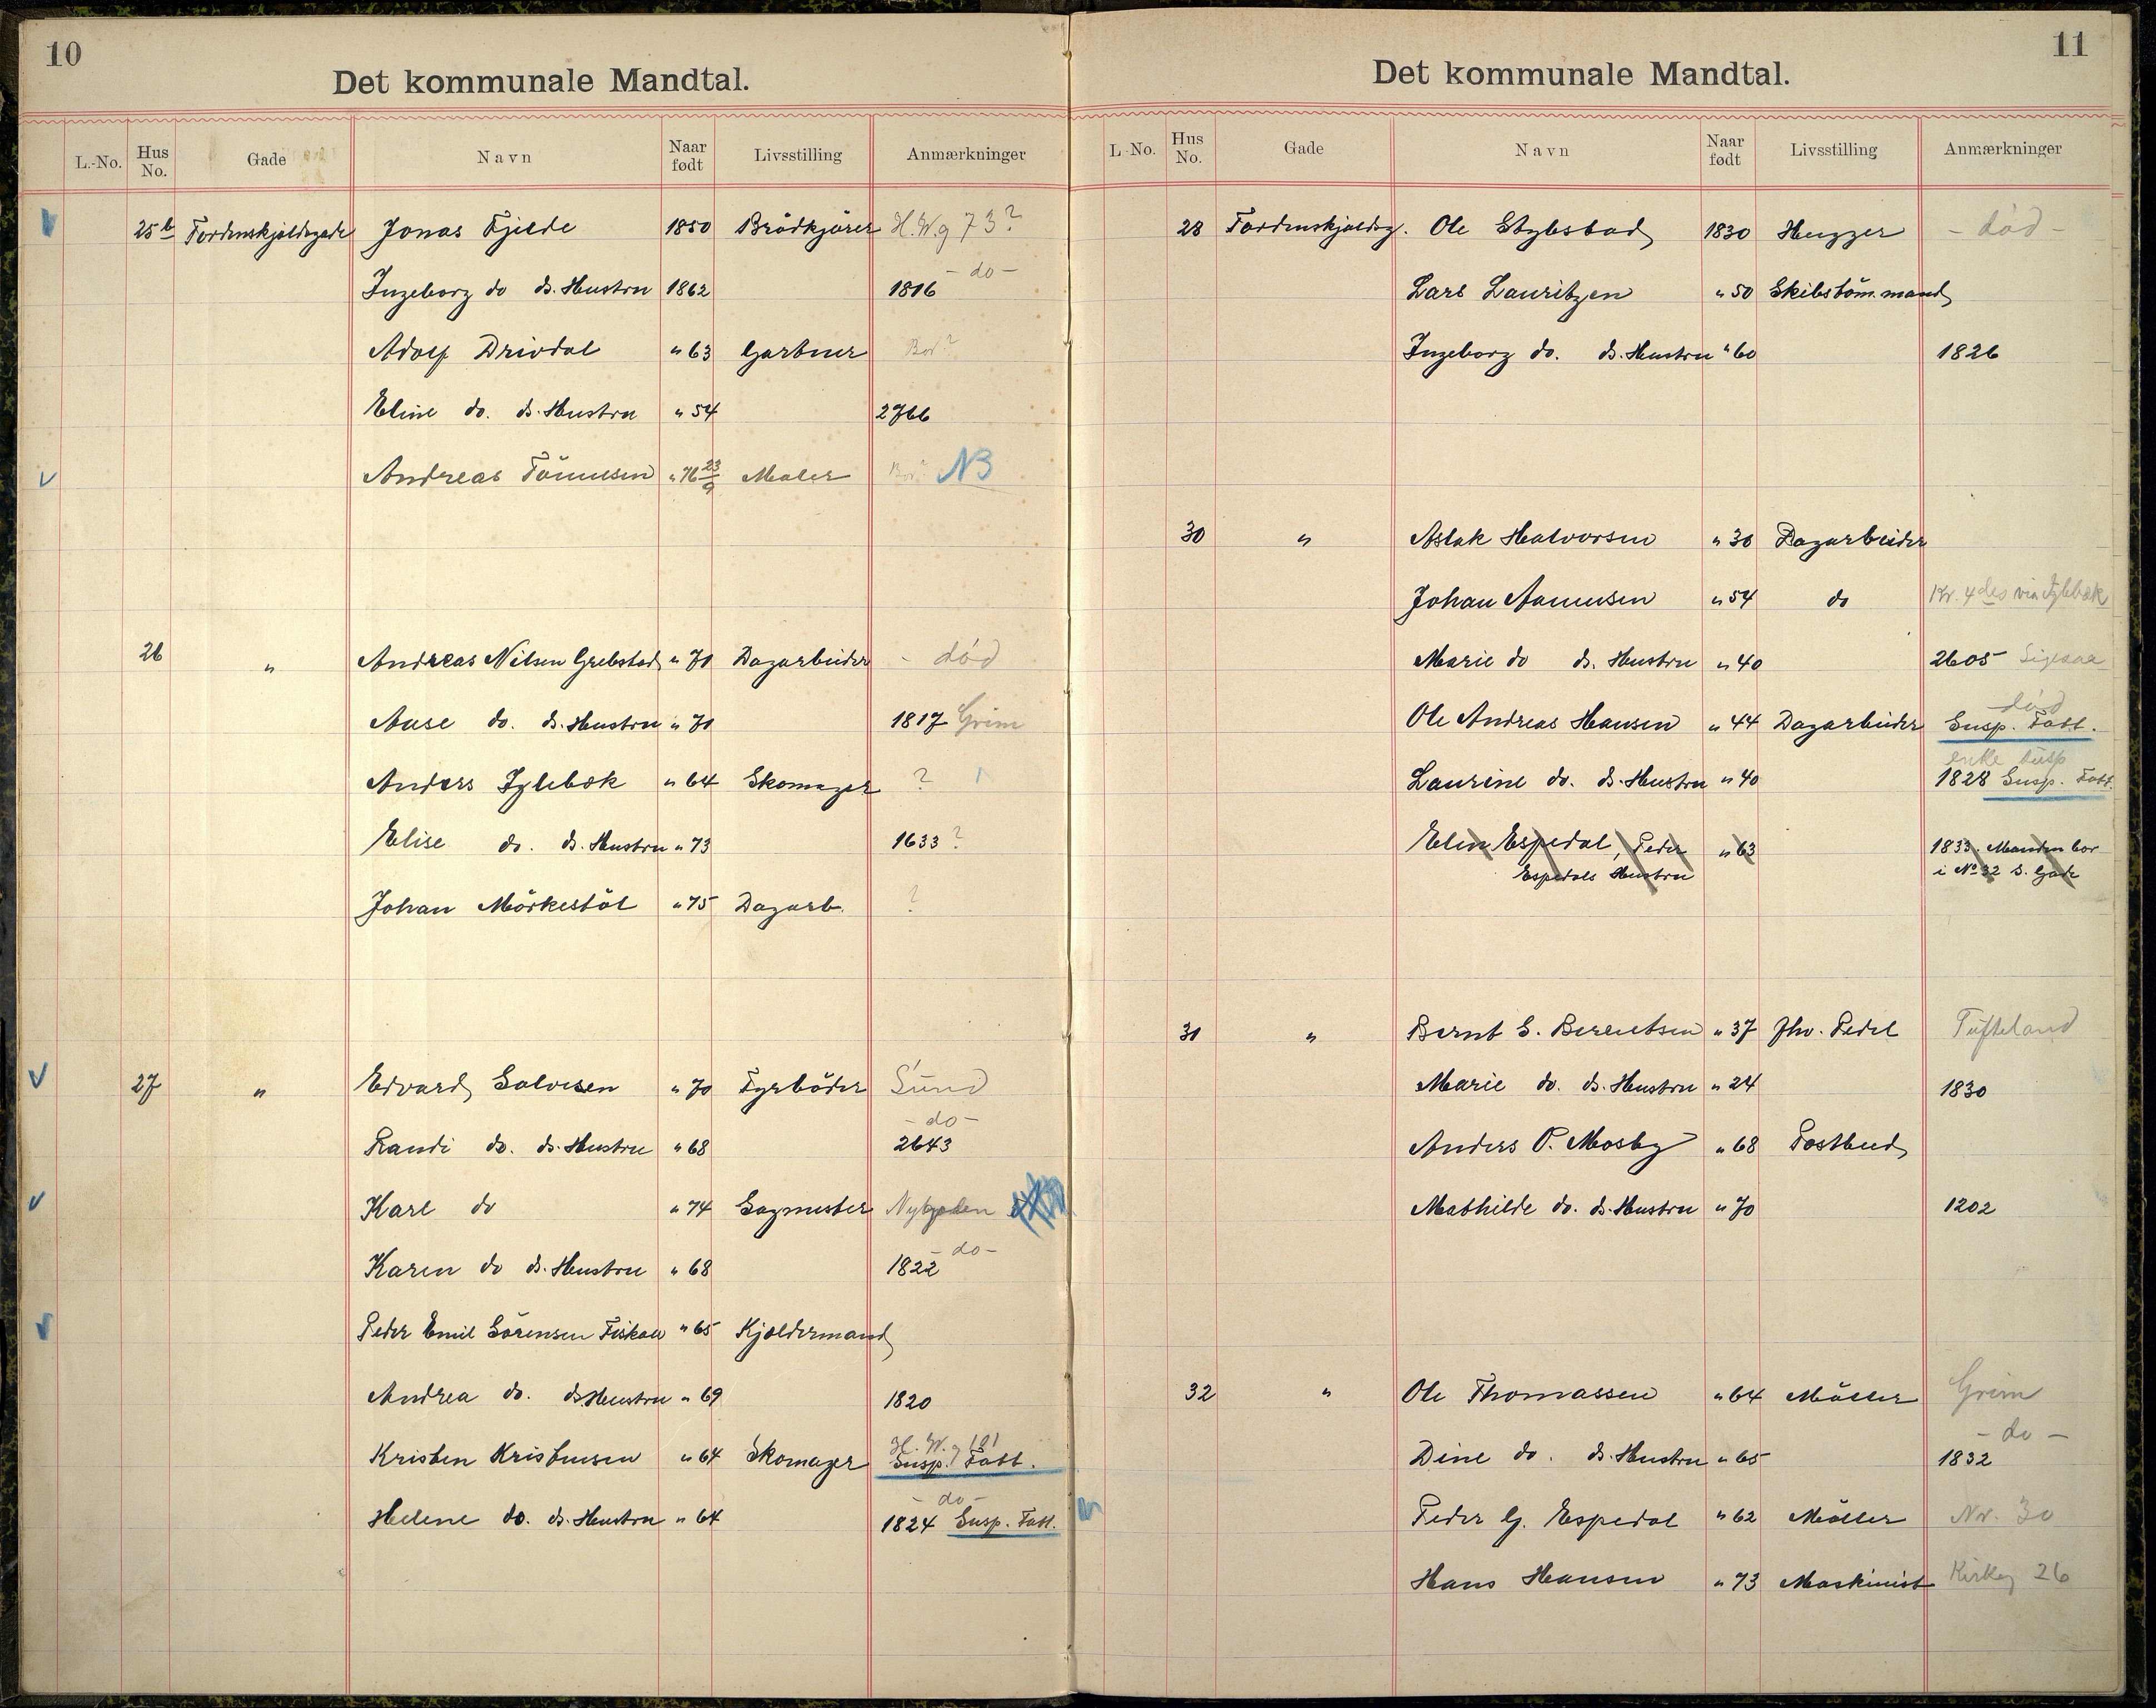 10
Det kommunale Mandtal.
L.-No. Hus No. Gade Navn Naar født Livsstilling Anmærkninger
25 b Tordenskjoldsgade Jonas Fjelde 1850 Brödkjörer H.W.g 73?
Ingeborg do ds. Hustru 1862 1816 - do -
Adolf Drivdal " 63 Gartner Bor?
Eline do. ds. Hustru " 54 2766
Andreas Tönnesen " 76 23/9 Maler Bor? NB
26 " Andreas Nilsen Grebstad " 70 Dagarbeider - död
Aase do. ds. Hustru " 70 1817 Grim
Anders Iglebæk " 64 Skomager ?
Elise do. ds. Hustru " 73 1633 ?
Johan Mörkestöl " 75 Dagarb. ?
27 " Edvard Salvesen " 70 Fyrböder Sund
Randi do. ds. Hustru " 68 - do - 2643
Karl do " 74 Sagmester Nybyen
Karen do ds. Hustru " 68 1822 - do -
Peder Emil Sörensen Fiskaa " 65 Kjældermand
Andrea do. ds Hustru " 69 1820
Kristen Kristensen " 64 Skomager H.W.g 101 Susp. Fatt.
Helene do. ds. Hustru " 64 - do - 1824 Susp. Fatt.
11
Det kommunale Mandtal.
L-No. Hus No. Gade Navn Naar født Livsstilling Anmærkninger
28 Tordenskjoldsg. Ole Stybstad 1830 Hugger - död -
Lars Lauritzen " 50 Skibstöm.mand
Ingeborg do. ds. Hustru " 60 1826
30 " Aslak Halvorsen " 30 Dagarbeider
Johan Aanensen " 54 do
Marie do ds. Hustru " 40 2605
Ole Andreas Hansen " 44 Dagarbeider död Susp. Fatt.
Laurine do. ds. Hustru " 40 enke susp 1828 Susp. Fatt.
Elin Espedal, Peder " 63 1833. Manden bor
Espedals Hustru i No 32 s. Gade
31 " Bernt S. Berentsen " 37 fhv. Pedel Tufteland
Marie do. ds. Hustru " 24 1830
Anders P. Mosby " 68 Postbud
Mathilde do. ds. Hustru " 70 1202
32 " Ole Thomassen " 64 Möller Grim
Dine do. ds. Hustru " 65 - do - 1832
Peder G. Espedal " 62 Möller Nr. 30
Hans Hansen " 73 Maskinist Kirkeg 26